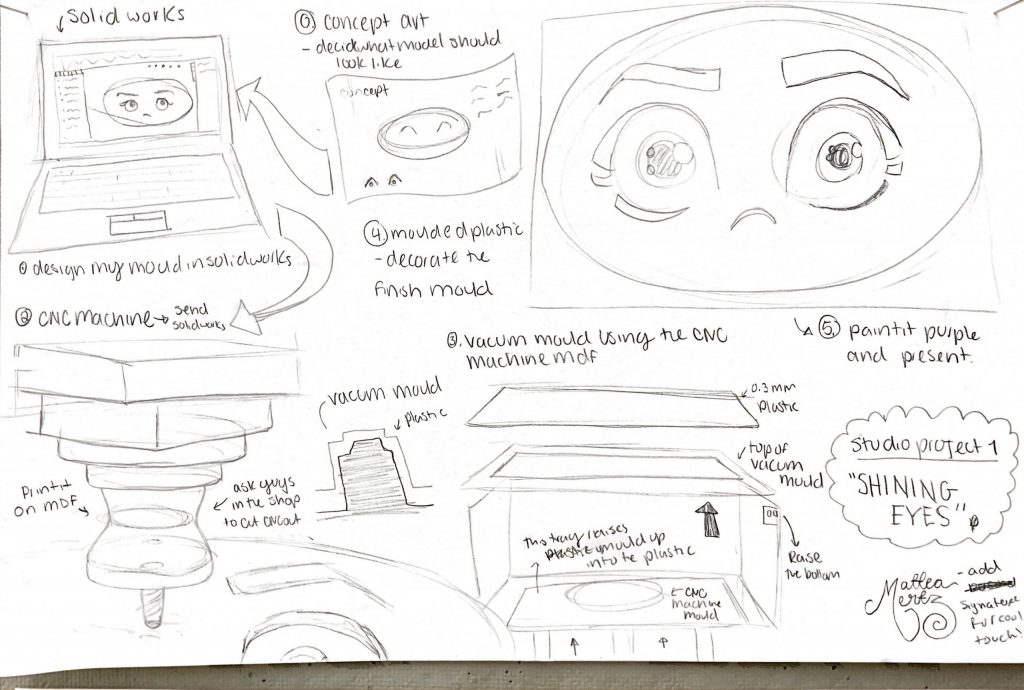 Solid works
⓪ concept art
- decide what model should
look like
concept
① design my mould in solidworks
② CNC machine → send
solidworks
Print it
on MDF
ask guys
in the shop
to cut CNC out
④ moulded plastic
- decorate the
finish mould
vacum mould
plastic
③. vacum mould using the CNC
machine mdf
0.3 mm
plastic
top of
vacum
mould
This tray raises
mould up
into te plastic
← CNC
machine
mould
Raise
the bottom
⑤ paint it purple
and present.
Studio project 1
"SHINING
EYES"
Mattea
Mertz
- add
signature
for cool
touch!